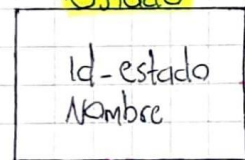 Id-estado
Nombre